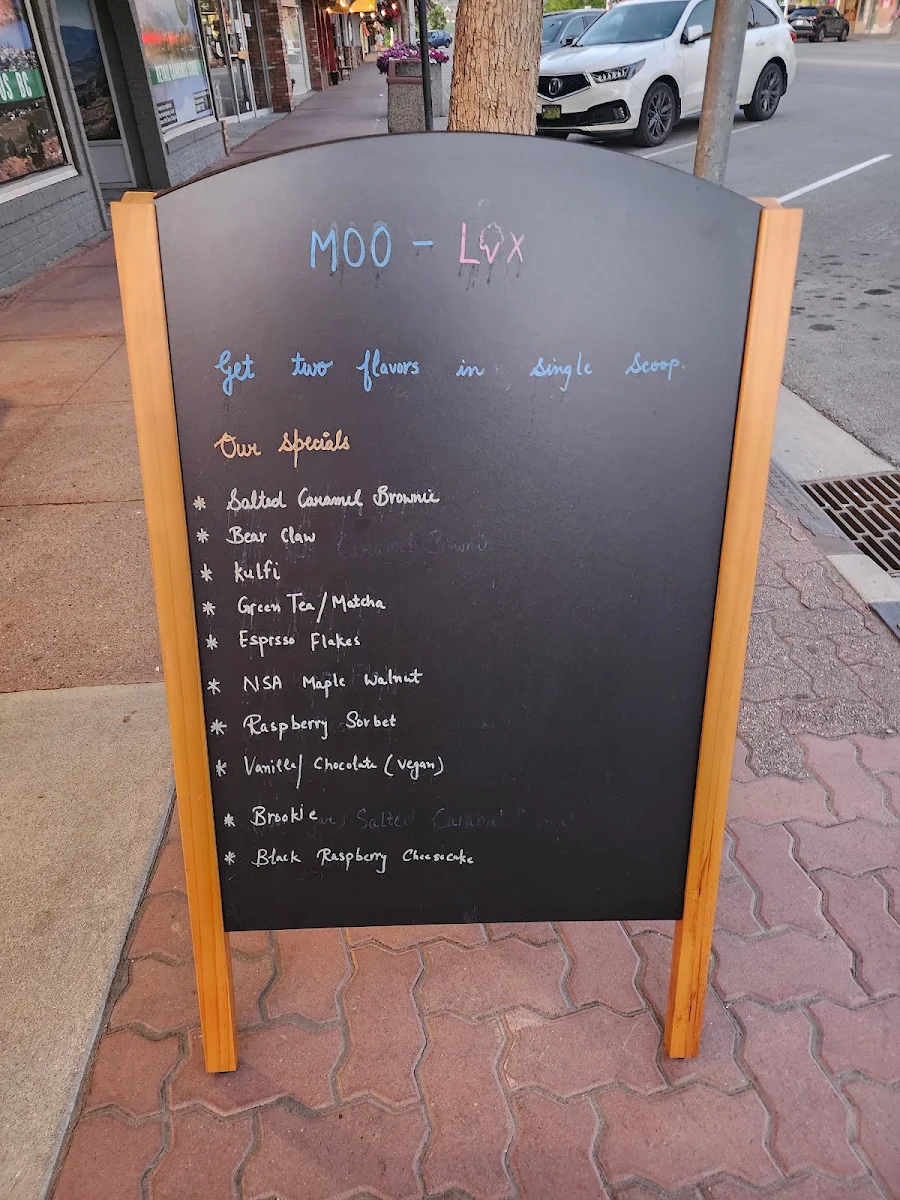 OS BC
MOO - LUX
Get two flavors in single scoop.
Our specials
* Salted Caramel Brownie
* Bear Claw
* Kulfi
* Green Tea/Matcha
* Esprsso Flakes
* NSA Maple Walnut
* Raspberry Sorbet
* Vanilla/ Chocolate (vegan)
* Brookie
* Black Raspberry Cheesecake